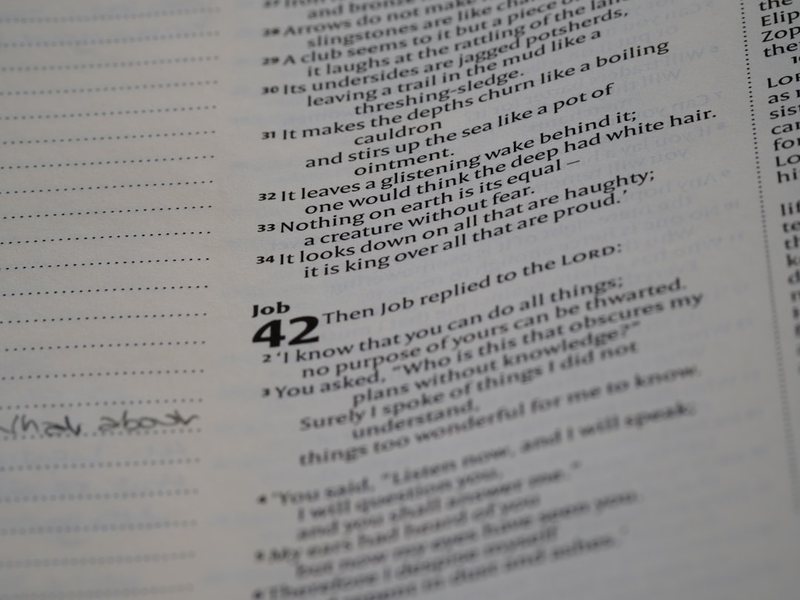 and bronze
28 Arrows do not make
slingstones are like
29 A club seems to it but a piece of
it laughs at the rattling of the
30 Its undersides are jagged potsherds,
leaving a trail in the mud like a
threshing-sledge.
31 It makes the depths churn like a boiling
cauldron
and stirs up the sea like a pot of
ointment.
32 It leaves a glistening wake behind it;
one would think the deep had white hair.
33 Nothing on earth is its equal –
a creature without fear.
34 It looks down on all that are haughty;
it is king over all that are proud.’
Job
42 Then Job replied to the LORD:
2 ‘I know that you can do all things;
no purpose of yours can be thwarted.
3 You asked, “Who is this that obscures my
plans without knowledge?”
Surely I spoke of things I did not
understand,
things too wonderful for me to know.
4 ‘You said, “Listen now, and I will speak;
I will question you,
and you shall answer me.”
5 My ears had heard of you
but now my eyes have seen you.
6 Therefore I despise myself
and repent in dust and ashes.’
what about
the
Elip
Zop
the
LOR
as
sis
car
for
LO
hi